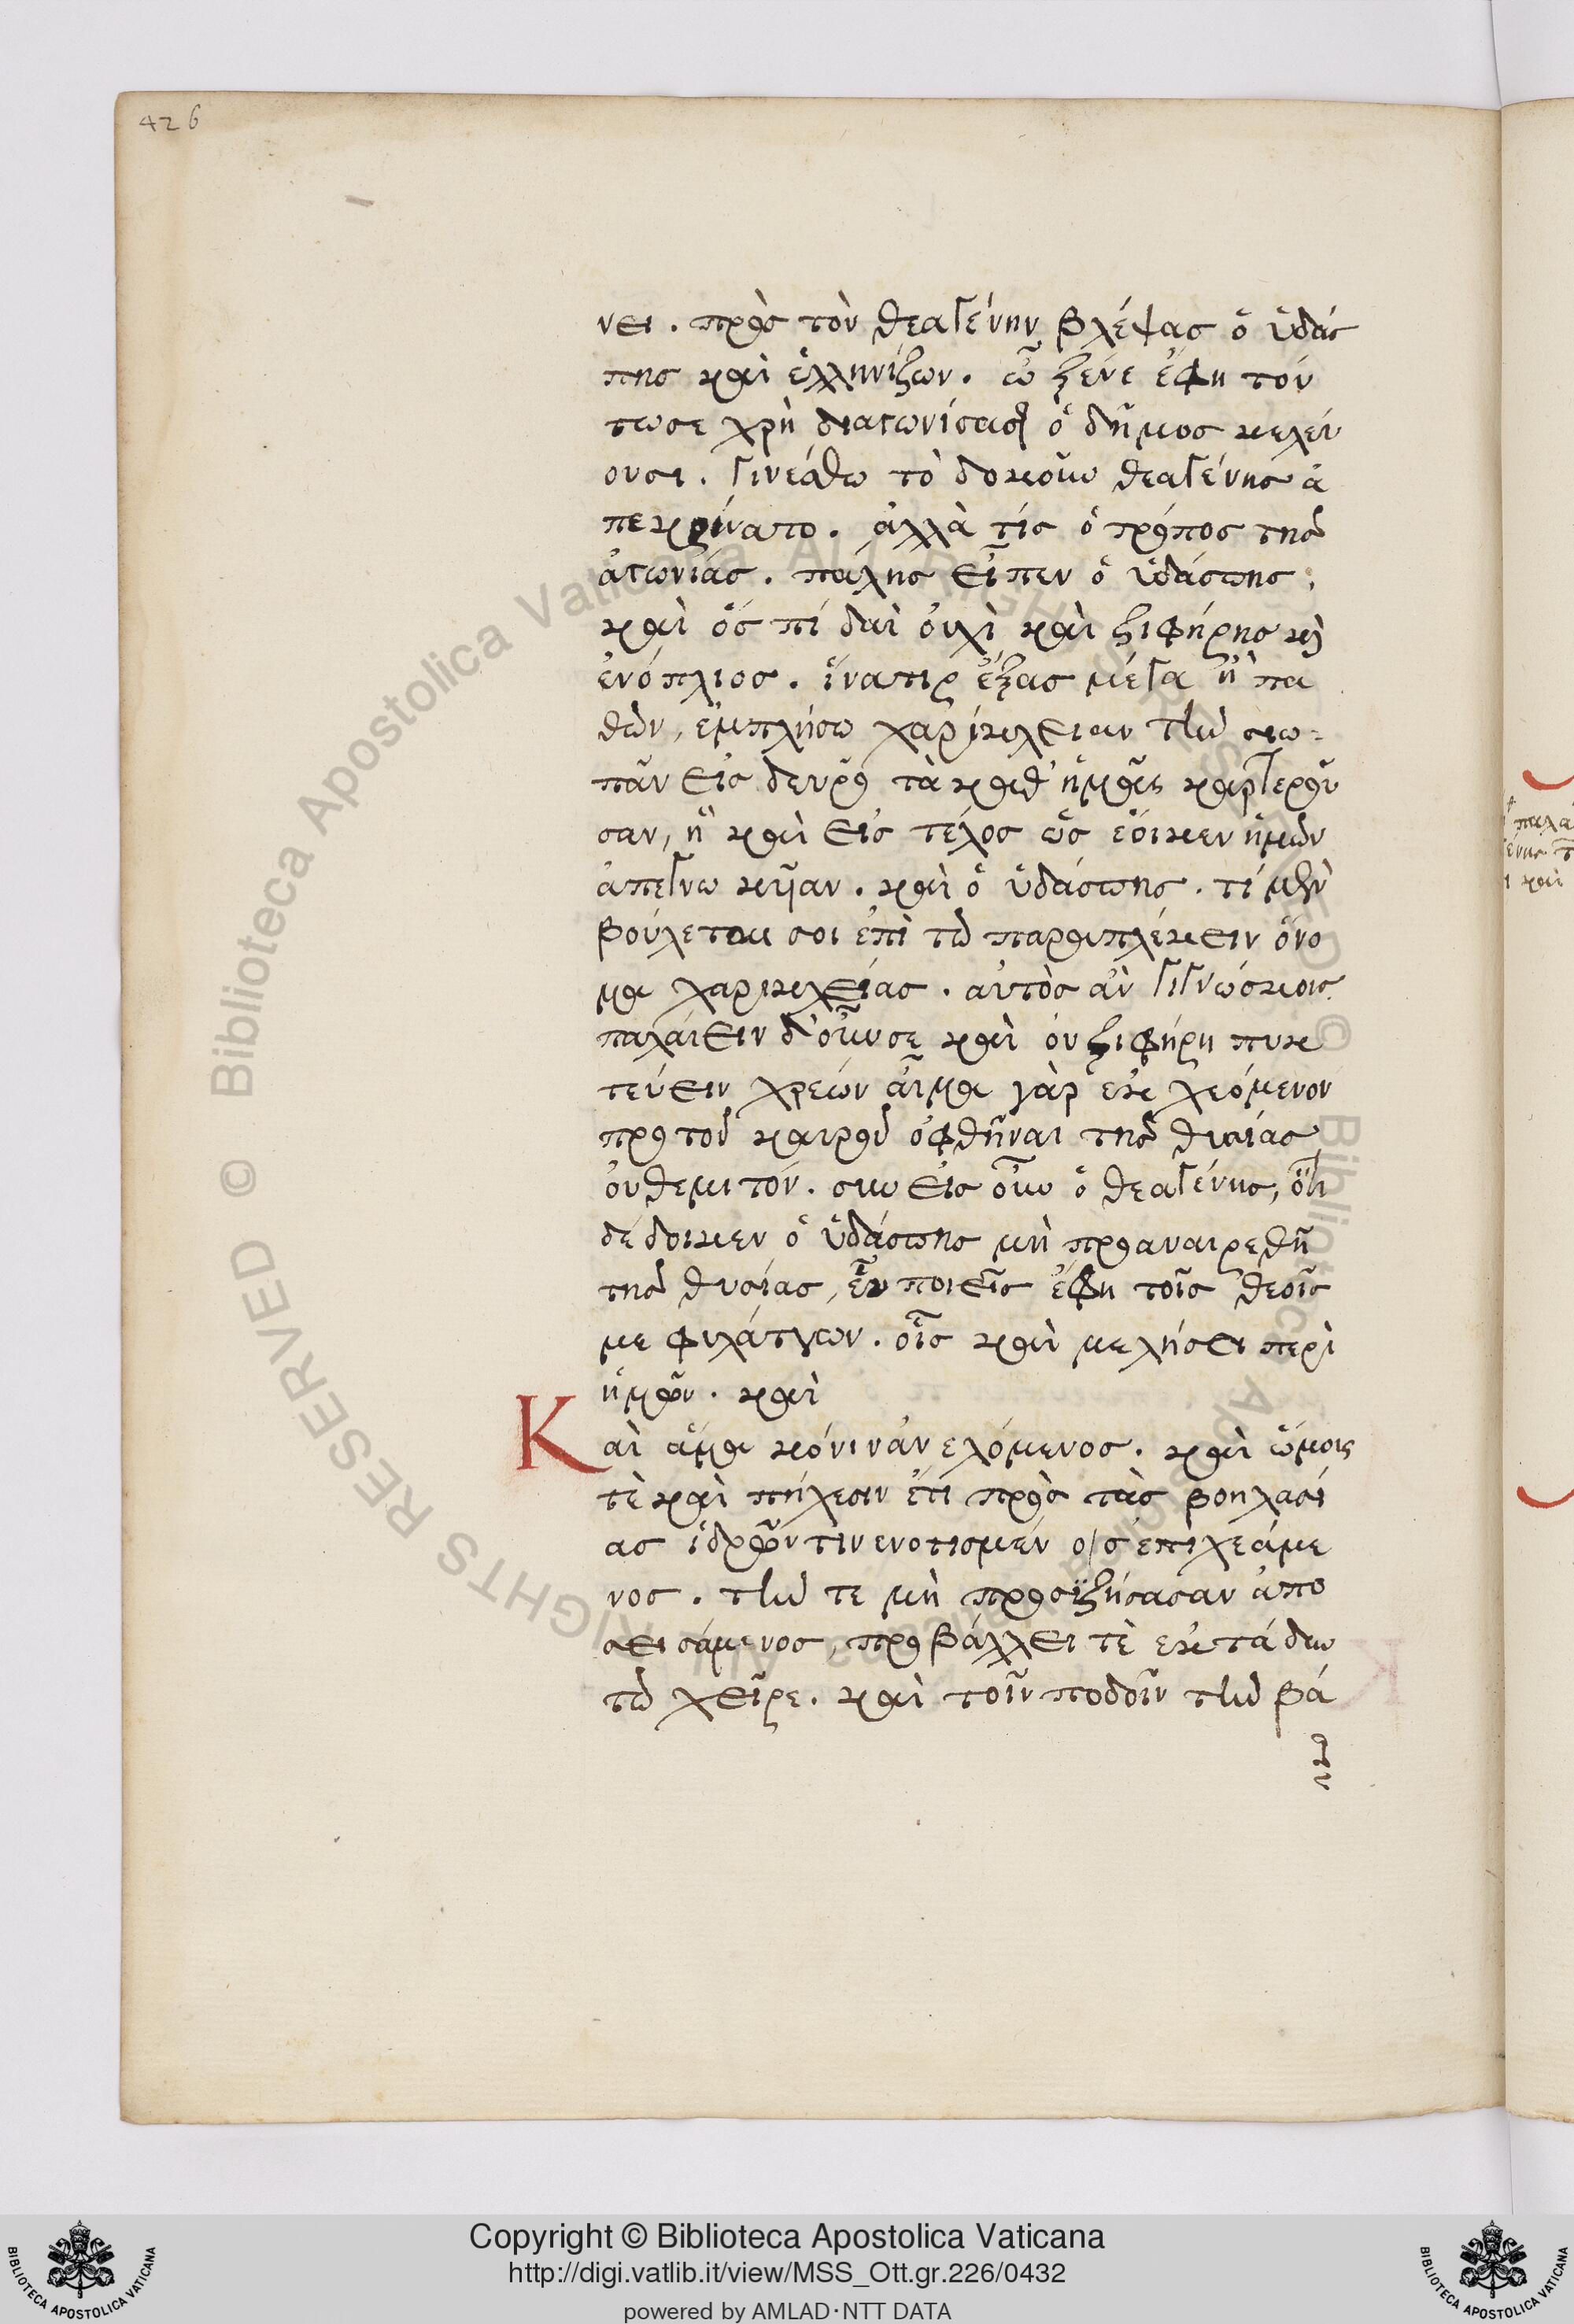 426
νει . πρὸς τὸν θεαγένην βλέψας ὁ ὑδάσ
πης καὶ ἑλληνίζων . ὦ ξένε ἔφη τού
τωσε χρὴ διαγωνίσασθαι ὁ δῆμος κελεύ
ουσι . γινέσθω τὸ δοκοῦν θεαγένης ἀ
πεκρίνατο . ἀλλὰ τίς ὁ τρόπος τῆς
ἀγωνίας . πάλης εἶπεν ὁ ὑδάσπης .
καὶ ὅς τί δαὶ οὐχὶ καὶ ξιφήρης καὶ
ἐνόπλιος . ἵνα τι ῥέξας μέγα ἢ πα
θὼν , ἐμπλήσω χαρίκλειαν τὴν σιω-
πᾶν εἰς δεῦρο τὰ καθ' ἡμᾶς καρτεροῦ
σαν , ἢ καὶ εἰς τέλος ὡς ἔοικεν ἡμῶν
ἀπεγνωκυῖαν . καὶ ὁ ὑδάσπης . τί μὲν
βούλεται σοι ἐπὶ τῶ παραπλέκειν ὄνο
μα χαρικλείας . αὐτὸς ἂν γιγνώσκοις
παλαίειν δ' οὖν σε καὶ οὐ ξιφήρη πυκ
τεύειν χρεών αἷμα γὰρ ἐκχεόμενον
πρὸ τοῦ καιροῦ ὀφθῆναι τῆς θυσίας
οὐ θεμιτόν . συνεὶς οὖν ὁ θεαγένης , ὅτι
δέδοικεν ὁ ὑδάσπης μὴ προαναιρεθῆ
τῆς θυσίας , εὖ ποιεῖς ἔφη τοῖς θεοῖς
με φυλάττων . οἷς καὶ μελήσει περὶ
ἡμῶν . καὶ
Καὶ ἅμα κόνιν ἀνελόμενος . καὶ ὤμοις
τὲ καὶ πήχεσιν ἔτι πρὸς τὰς βοηλασί
ας ἱδρῶντι νενοτισμένοις ἐπιχεάμε
νος . τήν τε μὴ προσϊζήσασαν ἀπο
σεισάμενος , προβάλλει τὲ ἐκτάδην
τὼ χεῖρε . καὶ τοῖν ποδοῖν τὴν βά
σιν